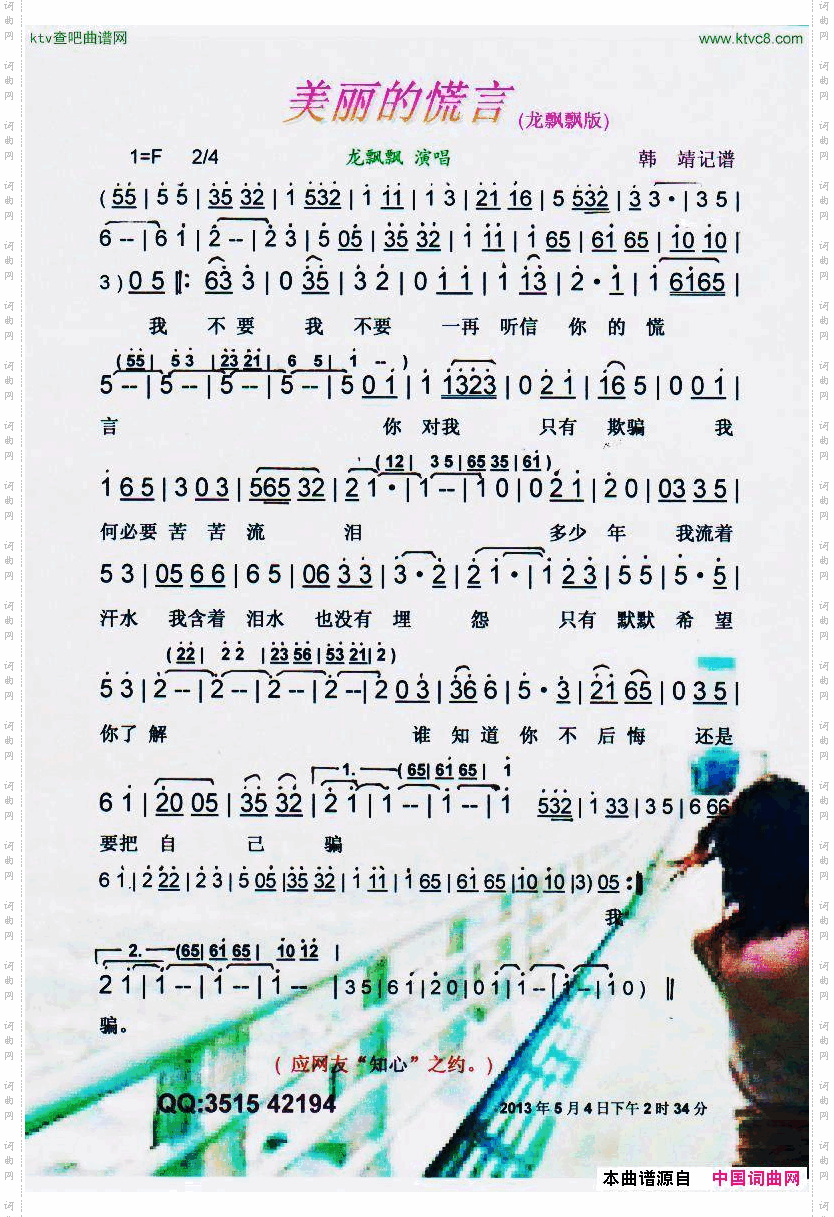 ktv查吧曲谱网 www.ktvc8.com
美丽的慌言 (龙飘飘版)
1=F 2/4 龙飘飘 演唱 韩 靖记谱
( 55 | 5 5 | 35 32 | 1 532 | 1 11 | 1 3 | 21 16 | 5 532 | 3 3 · | 3 5 |
6 -- | 6 1 | 2 -- | 2 3 | 5 05 | 35 32 | 1 11 | 1 65 | 61 65 | 10 10 |
3 ) 0 5 ‖: 63 3 | 0 35 | 3 2 | 0 1 1 | 1 13 | 2 · 1 | 1 6165 |
我 不 要 我 不要 一再 听信 你 的 慌
( 55 | 5 3 | 23 21 | 6 5 | 1 -- )
5 -- | 5 -- | 5 -- | 5 -- | 5 0 1 | 1 1323 | 0 2 1 | 16 5 | 0 0 1 |
言 你 对我 只有 欺骗 我
( 12 | 3 5 | 65 35 | 61 )
1 6 5 | 3 0 3 | 565 32 | 2 1 · | 1 -- | 1 0 | 0 2 1 | 2 0 | 03 3 5 |
何必要 苦 苦 流 泪 多少 年 我流着
5 3 | 05 6 6 | 6 5 | 06 3 3 | 3 · 2 | 2 1 · | 1 2 3 | 5 5 | 5 · 5 |
汗水 我含着 泪水 也没有 埋 怨 只有 默默 希 望
( 22 | 2 2 | 23 56 | 53 21 | 2 )
5 3 | 2 -- | 2 -- | 2 -- | 2 -- | 2 0 3 | 36 6 | 5 · 3 | 21 65 | 0 3 5 |
你了 解 谁 知 道 你 不 后 悔 还是
1. ( 65 | 61 65 | 1
6 1 | 20 05 | 35 32 | 2 1 | 1 -- | 1 -- | 1 532 | 1 33 | 3 5 | 6 66
要把 自 己 骗
6 1 | 2 22 | 2 3 | 5 05 | 35 32 | 1 11 | 1 65 | 61 65 | 10 10 | 3 ) 05 :‖
我
2. ( 65 | 61 65 | 10 12 |
2 1 | 1 -- | 1 -- | 1 -- | 3 5 | 6 1 | 2 0 | 0 1 | 1 -- | 1 -- | 1 0 ) ‖
骗。
( 应网友“知心”之约。)
QQ:3515 42194 2013 年 5 月 4 日下午 2 时 34 分
本曲谱源自 中国词曲网